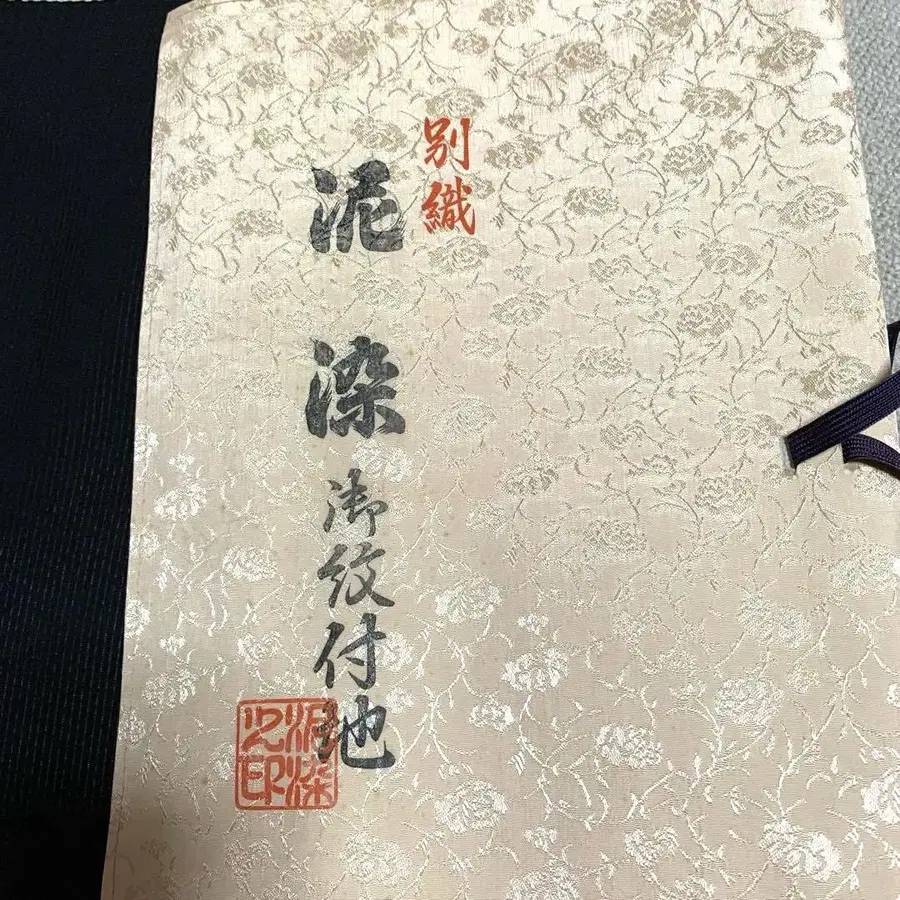 別織
泥染御紋付地
泥染
之印